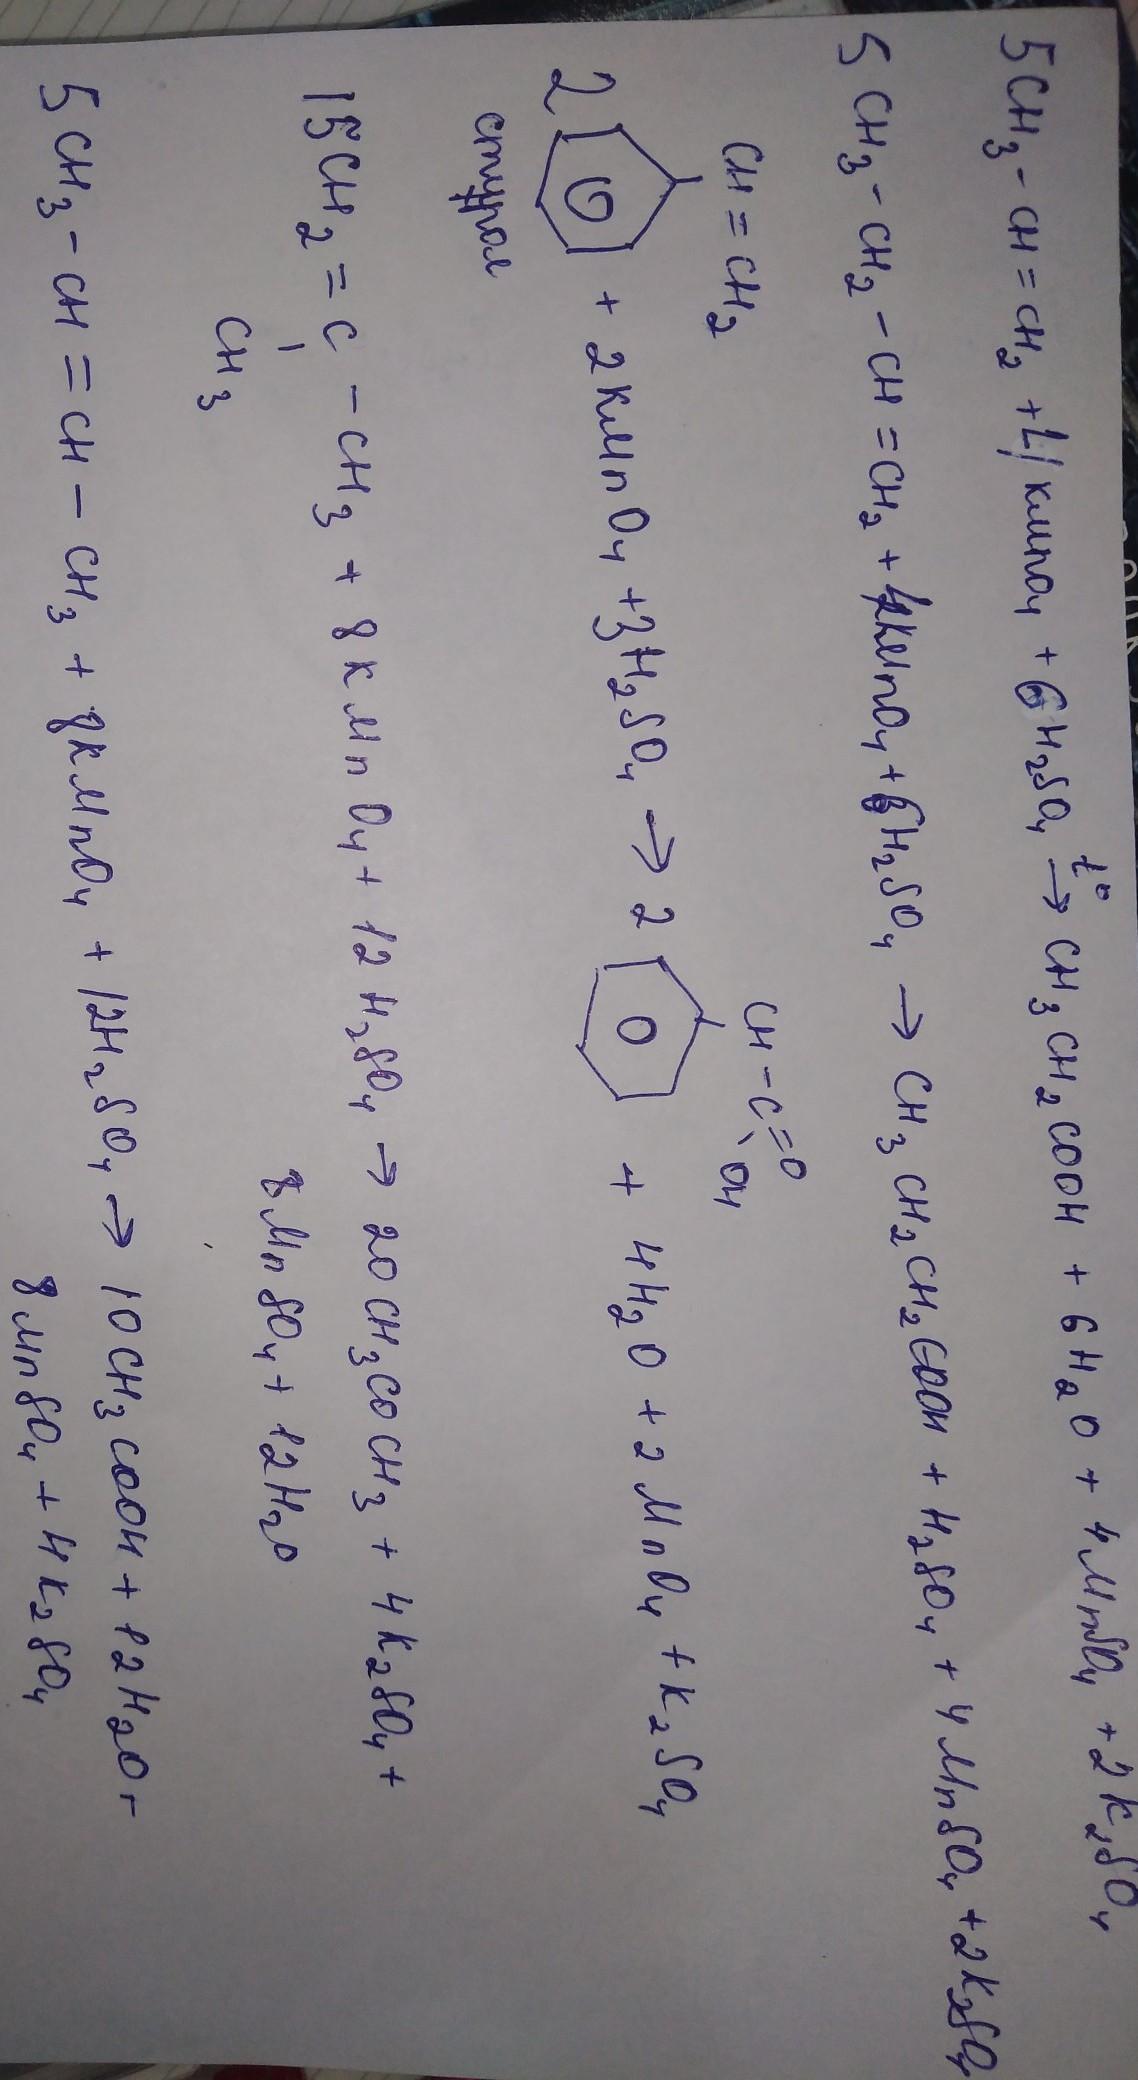 5CH3-CH=CH2+4KMnO4+6H2SO4 t°→ CH3CH2COOH+6H2O+4MnSO4+2K2SO4
5CH3-CH2-CH=CH2+4KMnO4+6H2SO4→CH3CH2CH2COOH+H2SO4+4MnSO4+2K2SO4
CH=CH2
CH-C=O
OH
2 + 2KMnO4+3H2SO4→2 + 4H2O+2MnO4+K2SO4
стирол
15CH2=C-CH3+8KMnO4+12H2SO4→20CH3COCH3+4K2SO4+
CH3
8MnSO4+12H2O
5CH3-CH=CH-CH3+8KMnO4+12H2SO4→10CH3COOH+12H2O+
8MnSO4+4K2SO4